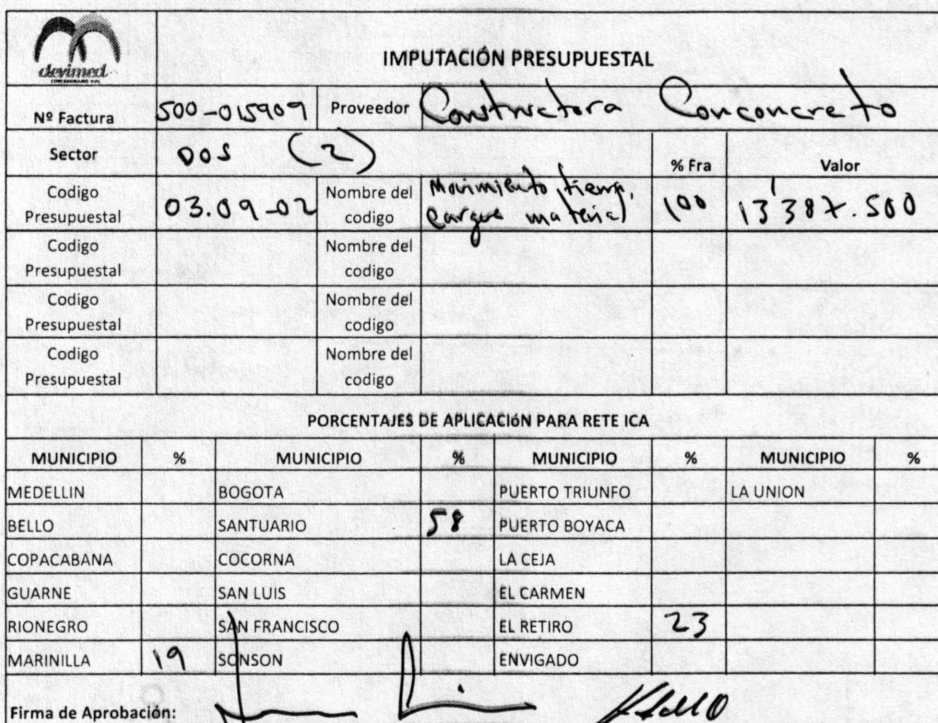 devimed
CONCESIONARIO VIAL
IMPUTACIÓN PRESUPUESTAL
Nº Factura 500-015909 Proveedor Constructora Conconcreto
Sector DOS (2) % Fra Valor
Codigo Presupuestal 03.09-02 Nombre del codigo Movimiento tierra, cargue material 100 13'387.500
Codigo Presupuestal Nombre del codigo
Codigo Presupuestal Nombre del codigo
Codigo Presupuestal Nombre del codigo
PORCENTAJES DE APLICACIÓN PARA RETE ICA
MUNICIPIO % MUNICIPIO % MUNICIPIO % MUNICIPIO %
MEDELLIN BOGOTA PUERTO TRIUNFO LA UNION
BELLO SANTUARIO 58 PUERTO BOYACA
COPACABANA COCORNA LA CEJA
GUARNE SAN LUIS EL CARMEN
RIONEGRO SAN FRANCISCO EL RETIRO 23
MARINILLA 19 SONSON ENVIGADO
Firma de Aprobación: